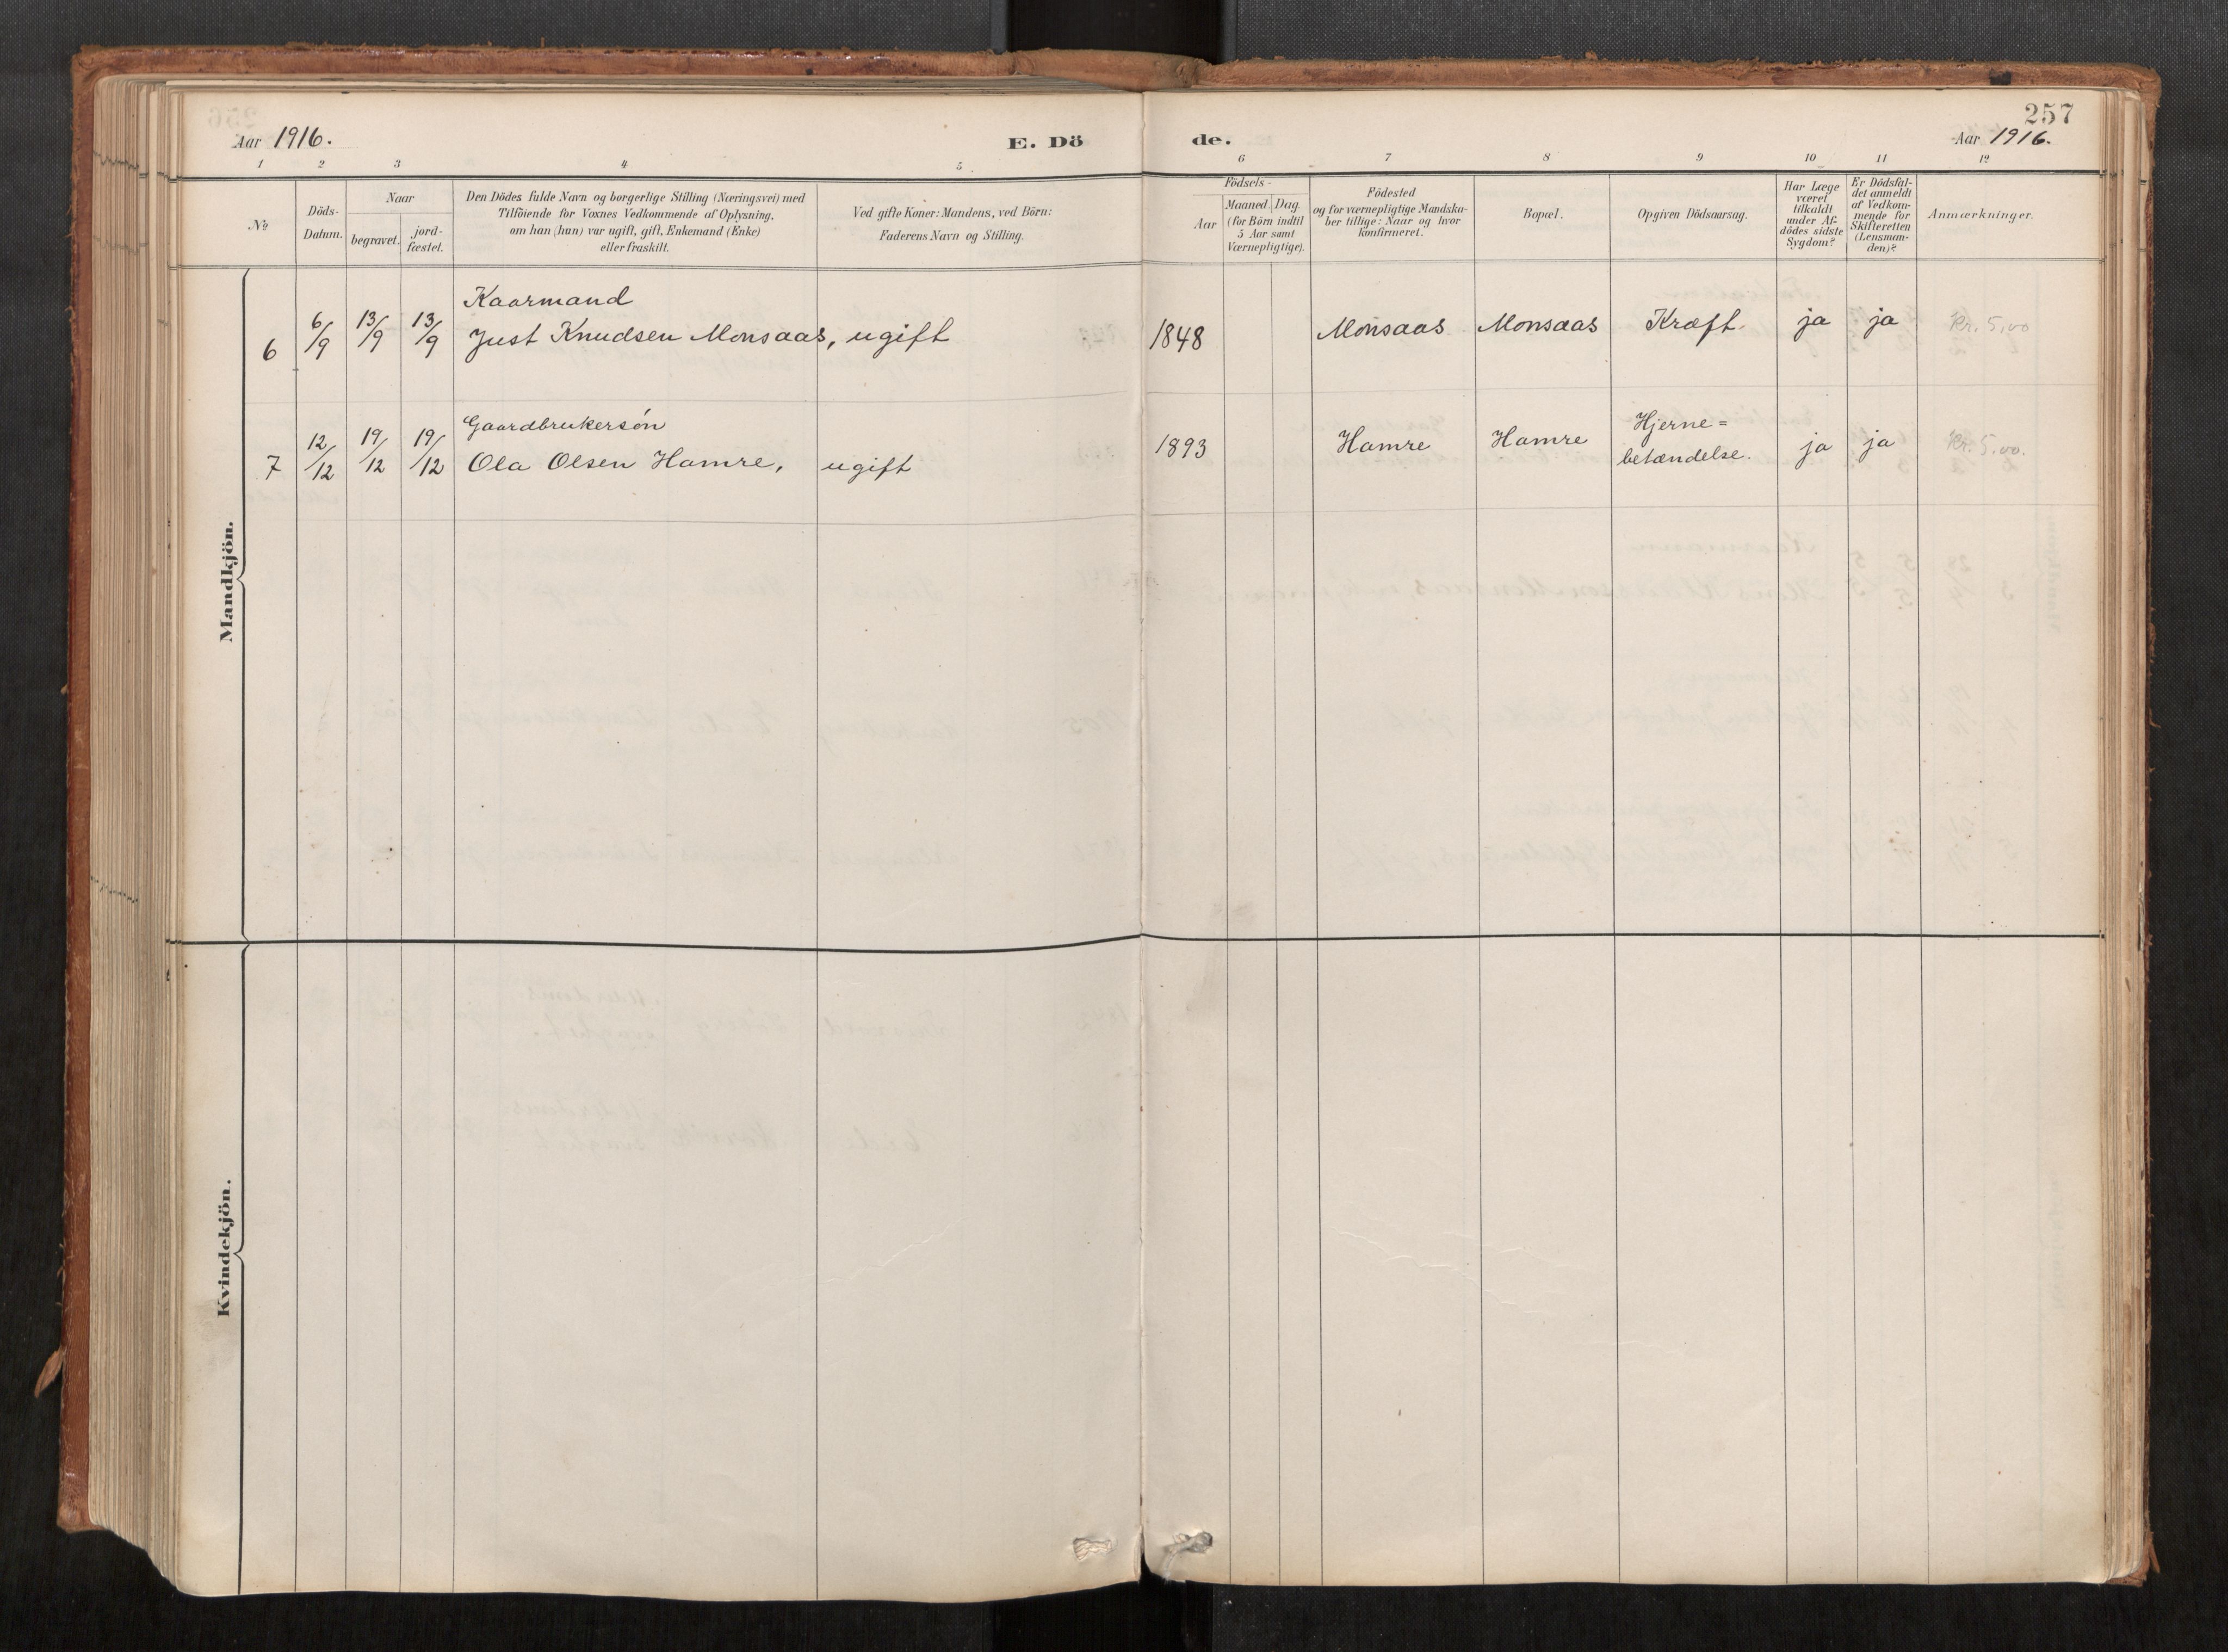 257
Aar 1916.
E. Döde.
Aar 1916.
1 2 3 4 5 6 7 8 9 10 11 12
№
Döds-
Datum.
Naar
begravet.
jord-
fæstet.
Den Dödes fulde Navn og borgerlige Stilling (Næringsvei) med
Tilföiende for Voxnes Vedkommende af Oplysning,
om han (hun) var ugift, gift, Enkemand (Enke)
eller fraskilt.
Ved gifte Koner: Mandens, ved Börn:
Faderens Navn og Stilling.
Födsels-
Aar
Maaned. Dag.
(for Börn indtil
5 Aar samt
Værnepligtige).
Födested
og for værnepligtige Mandska-
ber tillige: Naar og hvor
konfirmeret.
Bopæl.
Opgiven Dödsaarsag.
Har Læge
været
tilkaldt
under Af-
dödes sidste
Sygdom?
Er Dödsfal-
det anmeldt
af Vedkom-
mende for
Skifteretten
(Lensman-
den)?
Anmærkninger.
Mandkjön.
Kaarmand
6 6/9 13/9 13/9 Just Knudsen Monsaas, ugift 1848 Monsaas Monsaas Kræft. ja ja Kr. 5,00
Gaardbrukersón
7 12/12 19/12 19/12 Ola Olsen Hamre, ugift 1893 Hamre Hamre Hjerne=
betændelse. ja ja Kr. 5,00.
Kvindekjön.